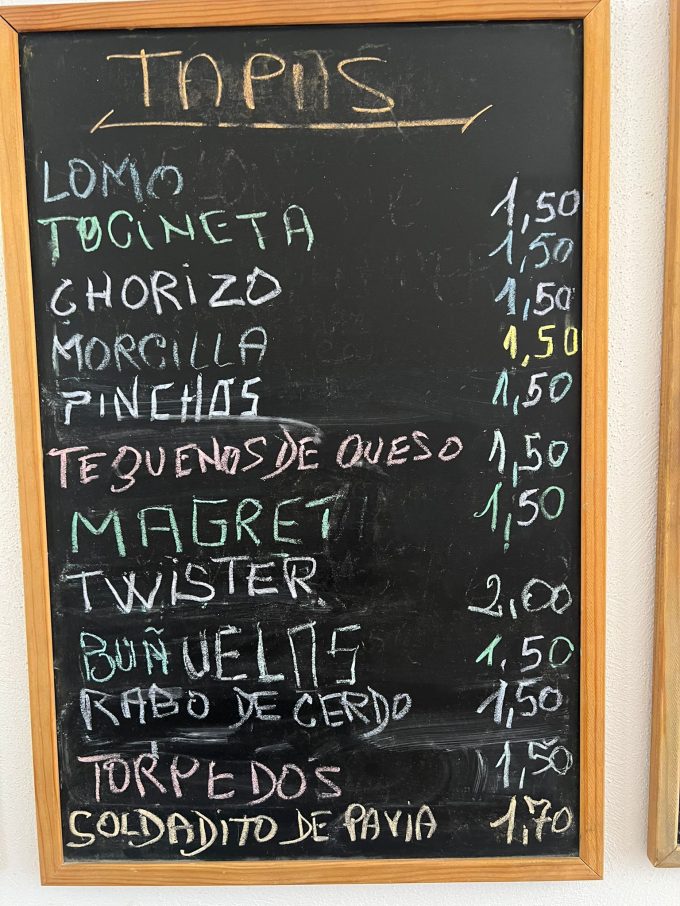 TAPAS
LOMO 1,50
TOCINETA 1,50
CHORIZO 1,50
MORCILLA 1,50
PINCHOS 1,50
TEQUENOS DE QUESO 1,50
MAGRET 1,50
TWISTER 2,00
BUÑUELOS 1.50
RABO DE CERDO 1,50
TORPEDOS 1,50
SOLDADITO DE PAVIA 1,70